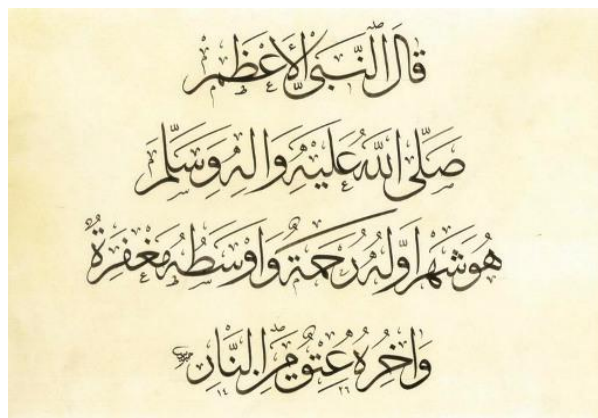 قَالَ النَّبِیُّ الأَعْظَمِ
صَلَّی اللهُ عَلَیْهِ وَالِهِ وَسَلَّمَ
هُوَ شَهْرٌ اَوَّلُهُ رَحْمَةٌ وَاَوْسَطُهُ مَغْفِرَةٌ
وَاٰخِرُهُ عِتْقٌ مِنَ النَّارِ
١٤ ٢٦